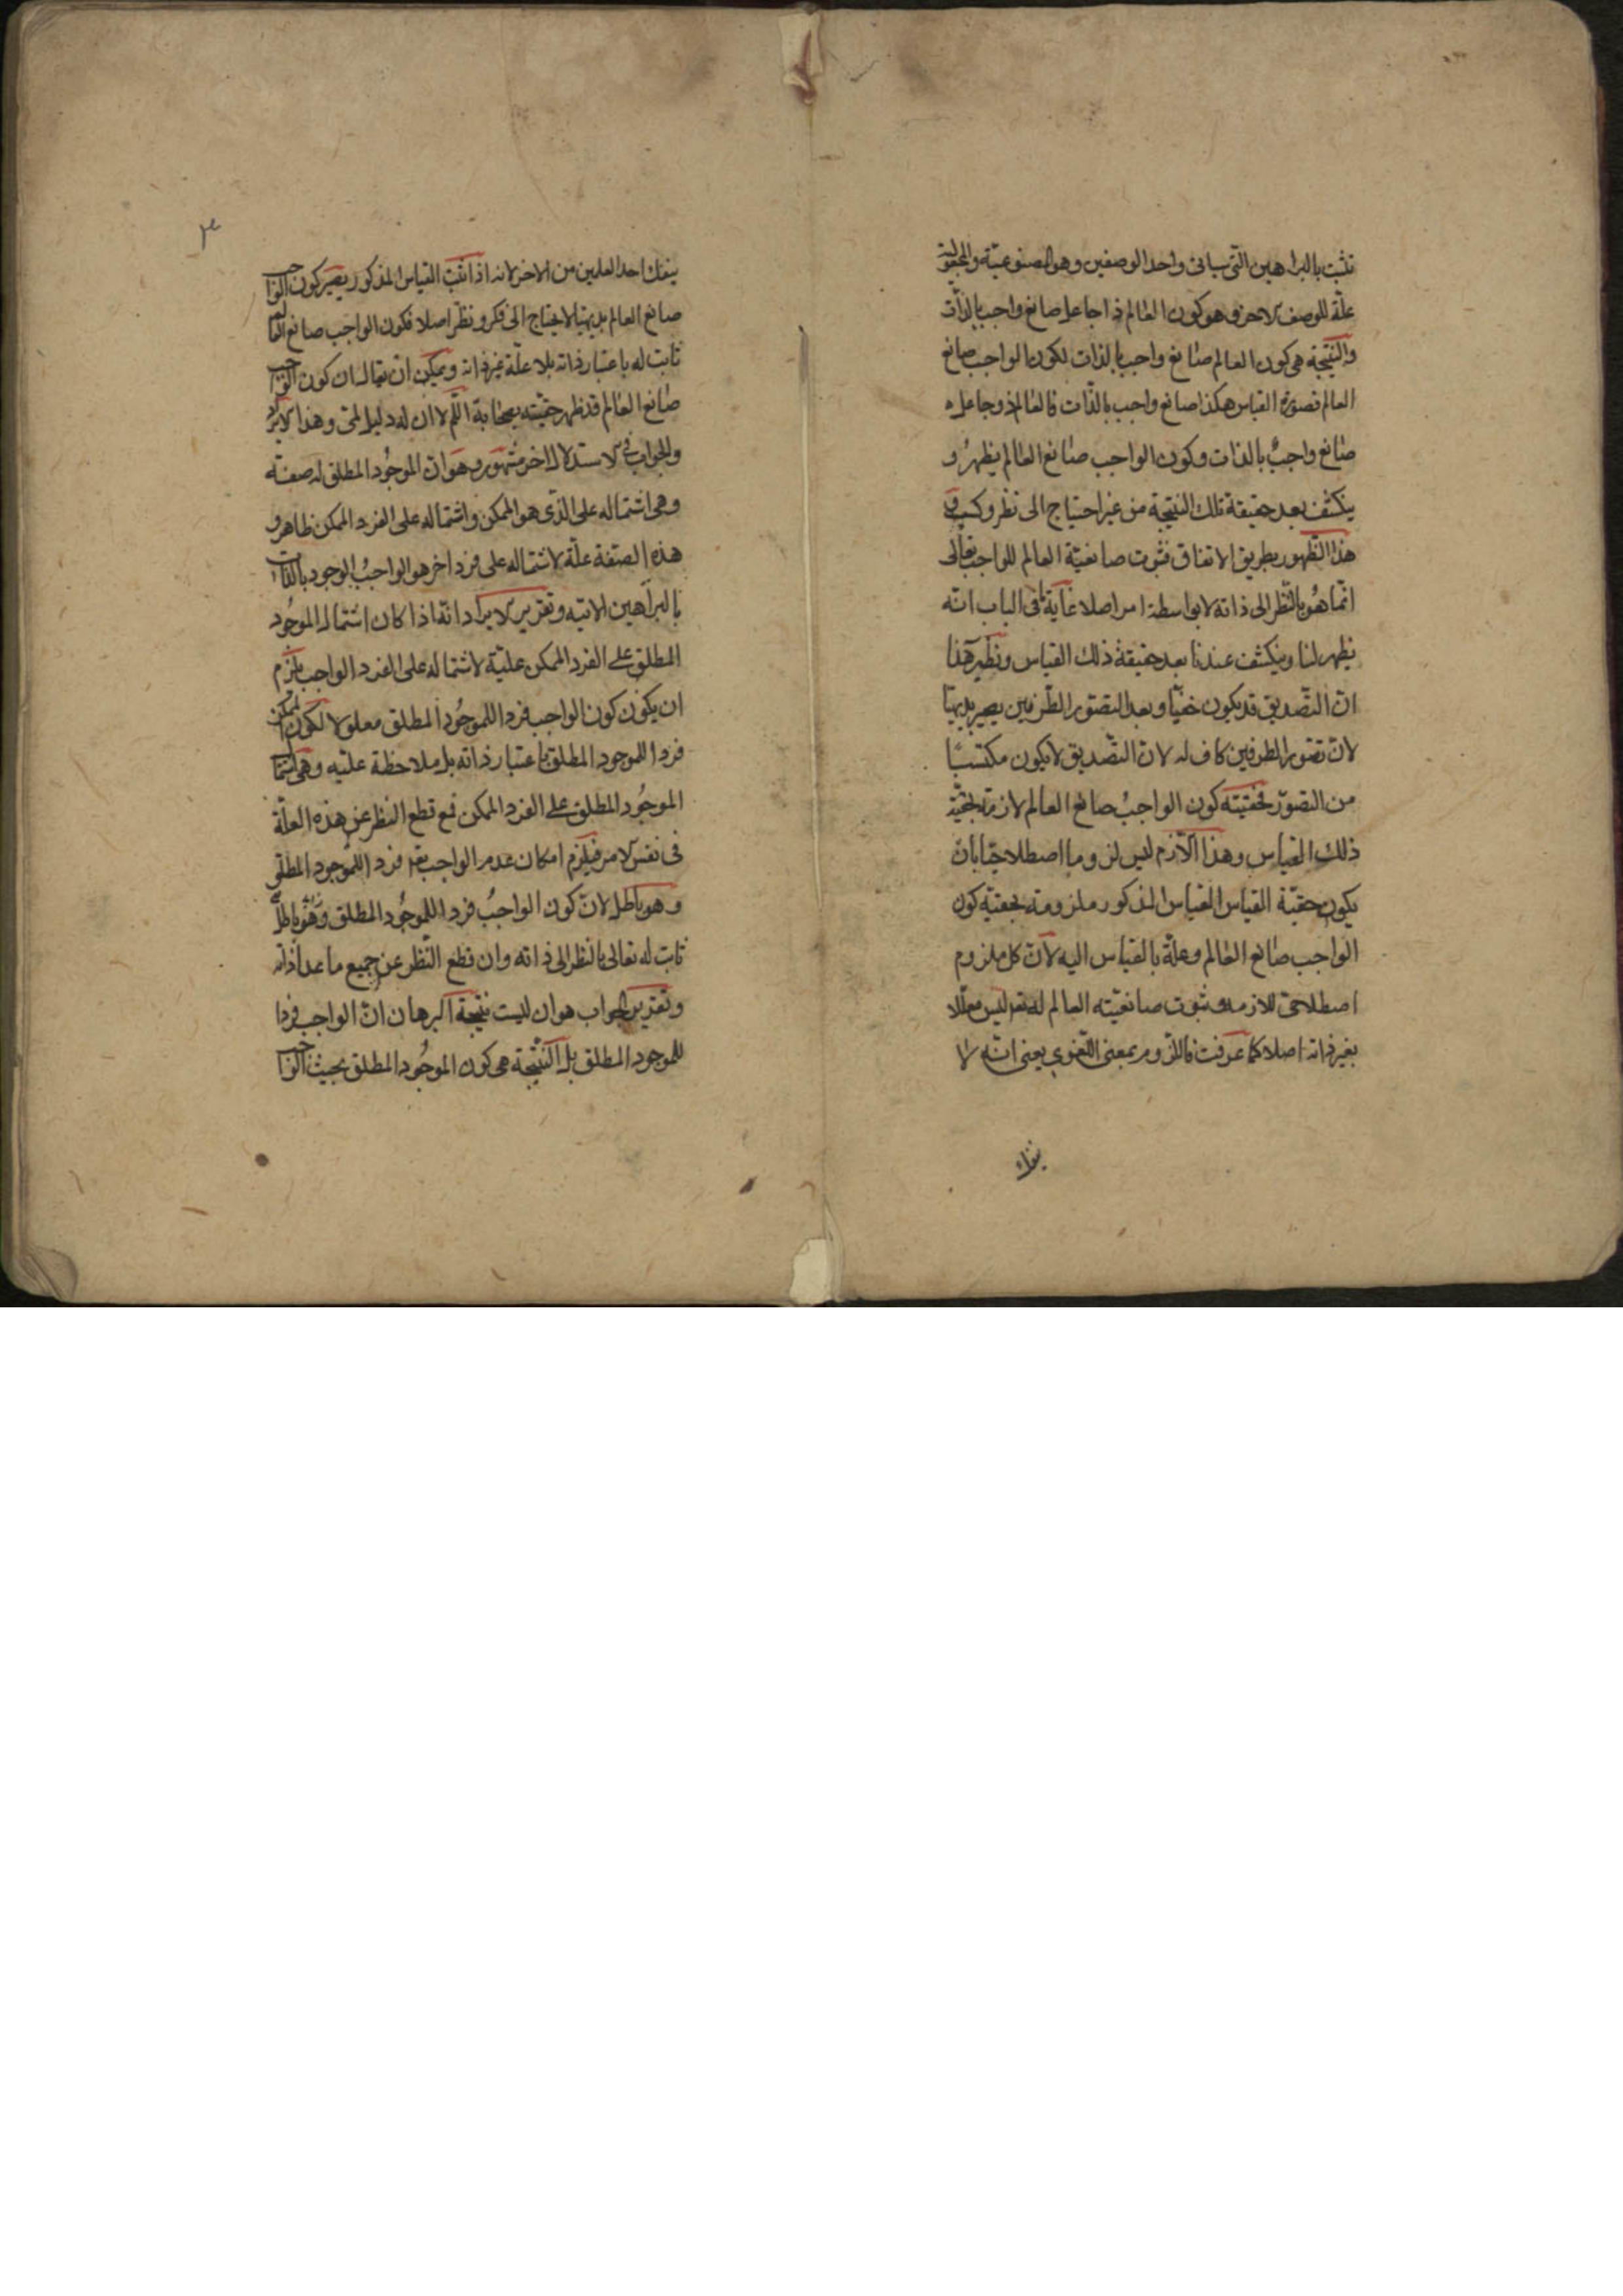 تثبت بالبراهين التي سياتي واحد الوصفين وهو المصنوعية والمجعولية
علة للوصف الاخر وهو كون العالم ذا جاعل صانع واجب بالذات
والنتيجة هي كون العالم صانع واجب بالذات لكون الواجب صانع
العالم فصورة القياس هكذا صانع واجب بالذات فالعالم ذو جاعل
صانع واجب بالذات وكون الواجب صانع العالم يظهر و
ينكشف بعد حقيقة تلك النتيجة من غير احتياج الى نظر وكسب و
هذا الظهور بطريق الاتفاق فثبوت صانعية العالم للواجب تعالى
انما هو بالنظر الى ذاته لا بواسطة امر اصلا غاية ما في الباب انه
يظهر لنا وينكشف عندنا بعد حقيقة ذلك القياس ونظير هذا
ان التصديق قد يكون خفيا وبعد التصور الطرفين يصير بديهيا
لان تصور الطرفين كاف له لان التصديق لا يكون مكتسبا
من التصور فحقيته كون الواجب صانع العالم لازمة لحقية
ذلك القياس وهذا اللازم ليس لزوما اصطلاحيا بان
يكون حقية القياس القياس المذكور ملزومة لحقية كون
الواجب صانع العالم وعلة بالقياس اليه لان كل ملزوم
اصطلاحي للازمه وثبوت صانعيته العالم له تعر ليس معللا
بغير ذاته اصلا كما عرفت فاللزوم بمعنى اللغوي يعني انه لا
ينفك
٣
ينفك احد العلمين من الاخر لانه اذا انتب القياس المذكور يصير كون الواجب
صانع العالم بديهيا لا يحتاج الى فكر ونظر اصلا فكون الواجب صانع العالم
ثابت له باعتبار ذاته بلا علة غير ذاته ويمكن ان يقال ان كون الواجب
صانع العالم قد ظهر حقيته بمثابة اللم لا ان له دليل لمي وهذا الايراد
والجواب في الاستدلال اخر مشهور وهو ان الموجود المطلق له صفة
وهي اشتماله على الذي هو الممكن واشتماله على الفرد الممكن ظاهر و
هذه الصفة علة لاشتماله على فرد اخر هو الواجب الوجود بالذات
بالبراهين الاتيه وتقرير الايراد انه اذا كان اشتمال الموجود
المطلق على الفرد الممكن علية لاشتماله على الفرد الواجب يلزم
ان يكون كون الواجب فردا للموجود المطلق معلولا لكون الممكن
فردا للموجود المطلق باعتبار ذاته بل ملاحظة علية وهي اشتمال
الموجود المطلق على الفرد الممكن فمع قطع النظر عن هذه العلة
في نفس الامر فيلزم امكان عدم الواجب تعر فردا للموجود المطلق
وهو باطل لان كون الواجب فردا للموجود المطلق وهو باطل
ثابت له تعالى بالنظر الى ذاته وان قطع النظر عن جميع ما عدا ذاته
وتقرير الجواب هو ان ليست نتيجة البرهان ان الواجب فردا
للموجود المطلق بل النتيجة هي كون الموجود المطلق بحيث الواجب